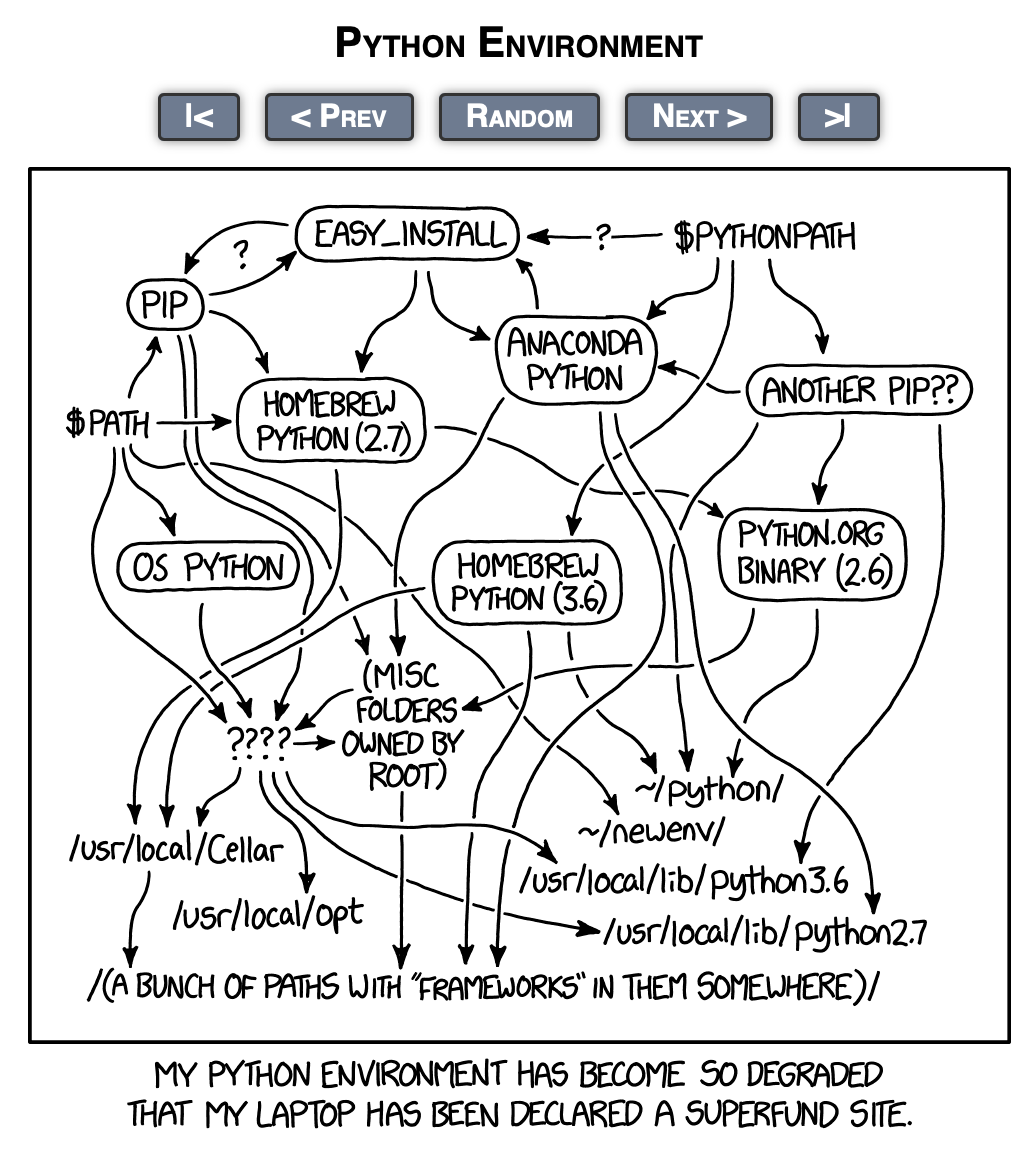 Python Environment
|<
< Prev
Random
Next >
>|
EASY_INSTALL
?
$PYTHONPATH
?
PIP
ANACONDA
PYTHON
ANOTHER PIP??
HOMEBREW
PYTHON (2.7)
$PATH
OS PYTHON
HOMEBREW
PYTHON (3.6)
PYTHON.ORG
BINARY (2.6)
(MISC
FOLDERS
OWNED BY
ROOT)
????
~/python/
~/newenv/
/usr/local/Cellar
/usr/local/lib/python3.6
/usr/local/opt
/usr/local/lib/python2.7
/(A BUNCH OF PATHS WITH "FRAMEWORKS" IN THEM SOMEWHERE)/
MY PYTHON ENVIRONMENT HAS BECOME SO DEGRADED
THAT MY LAPTOP HAS BEEN DECLARED A SUPERFUND SITE.